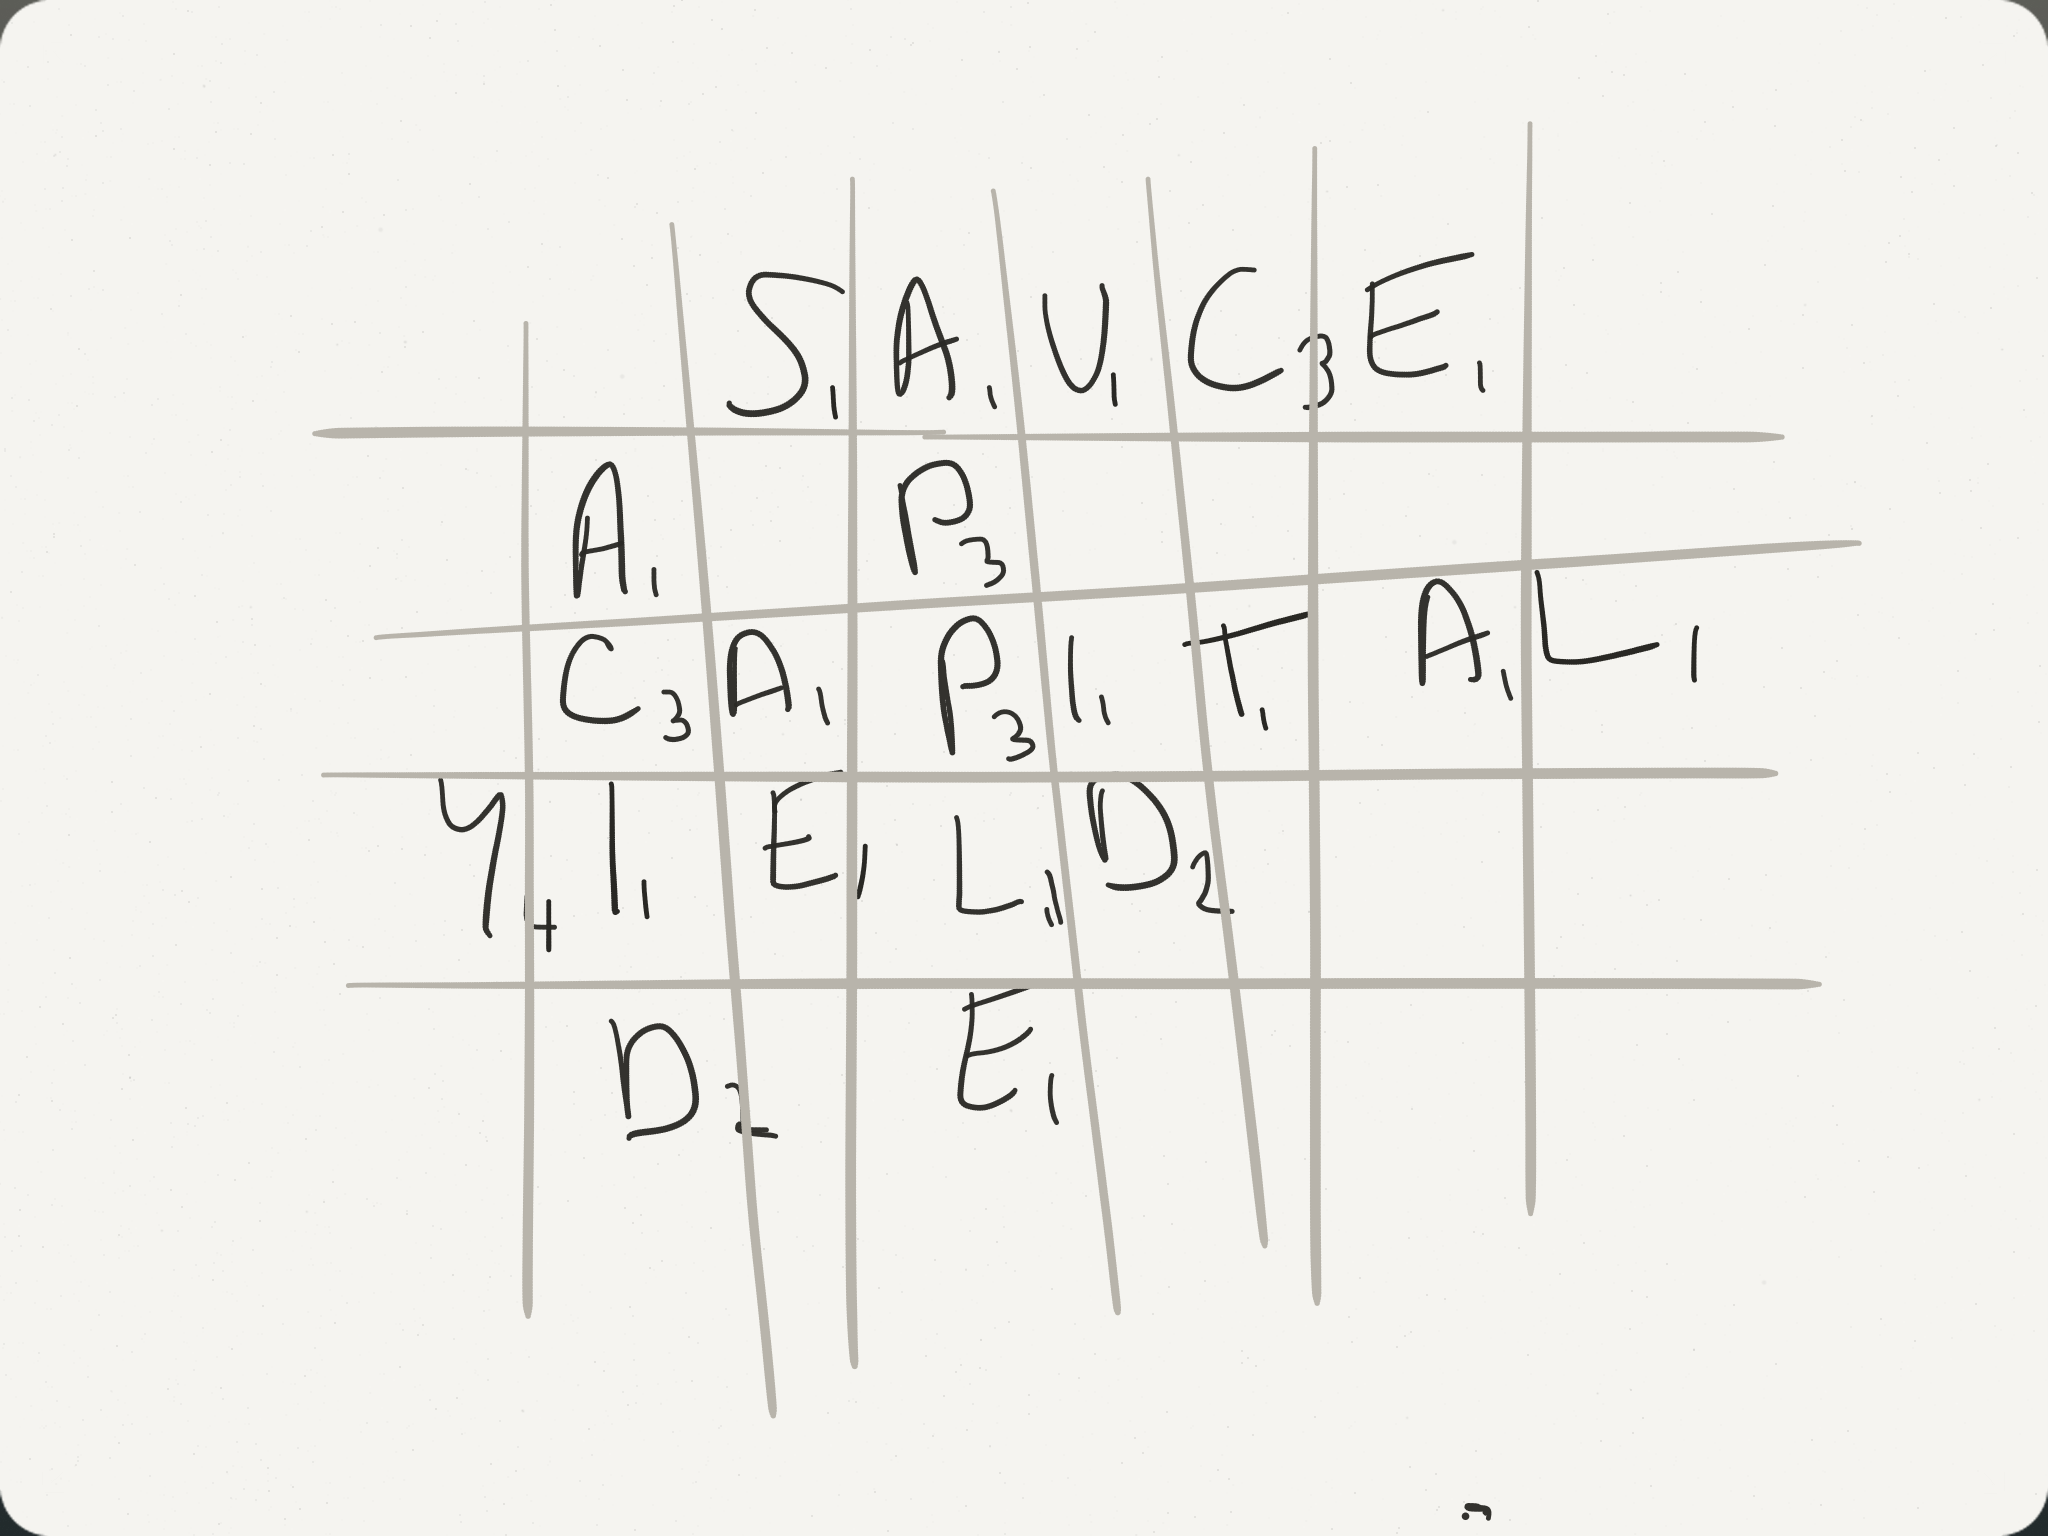 S1 A1 U1 C3 E1
A1 P3
C3 A1 P3 I1 T1 A1 L1
Y4 I1 E1 L1 D2
D2 E1